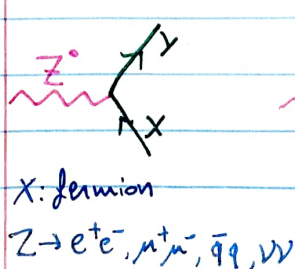 Z° y
X
X: fermion
Z → e⁺e⁻, μ⁺μ⁻, q̄q, νν